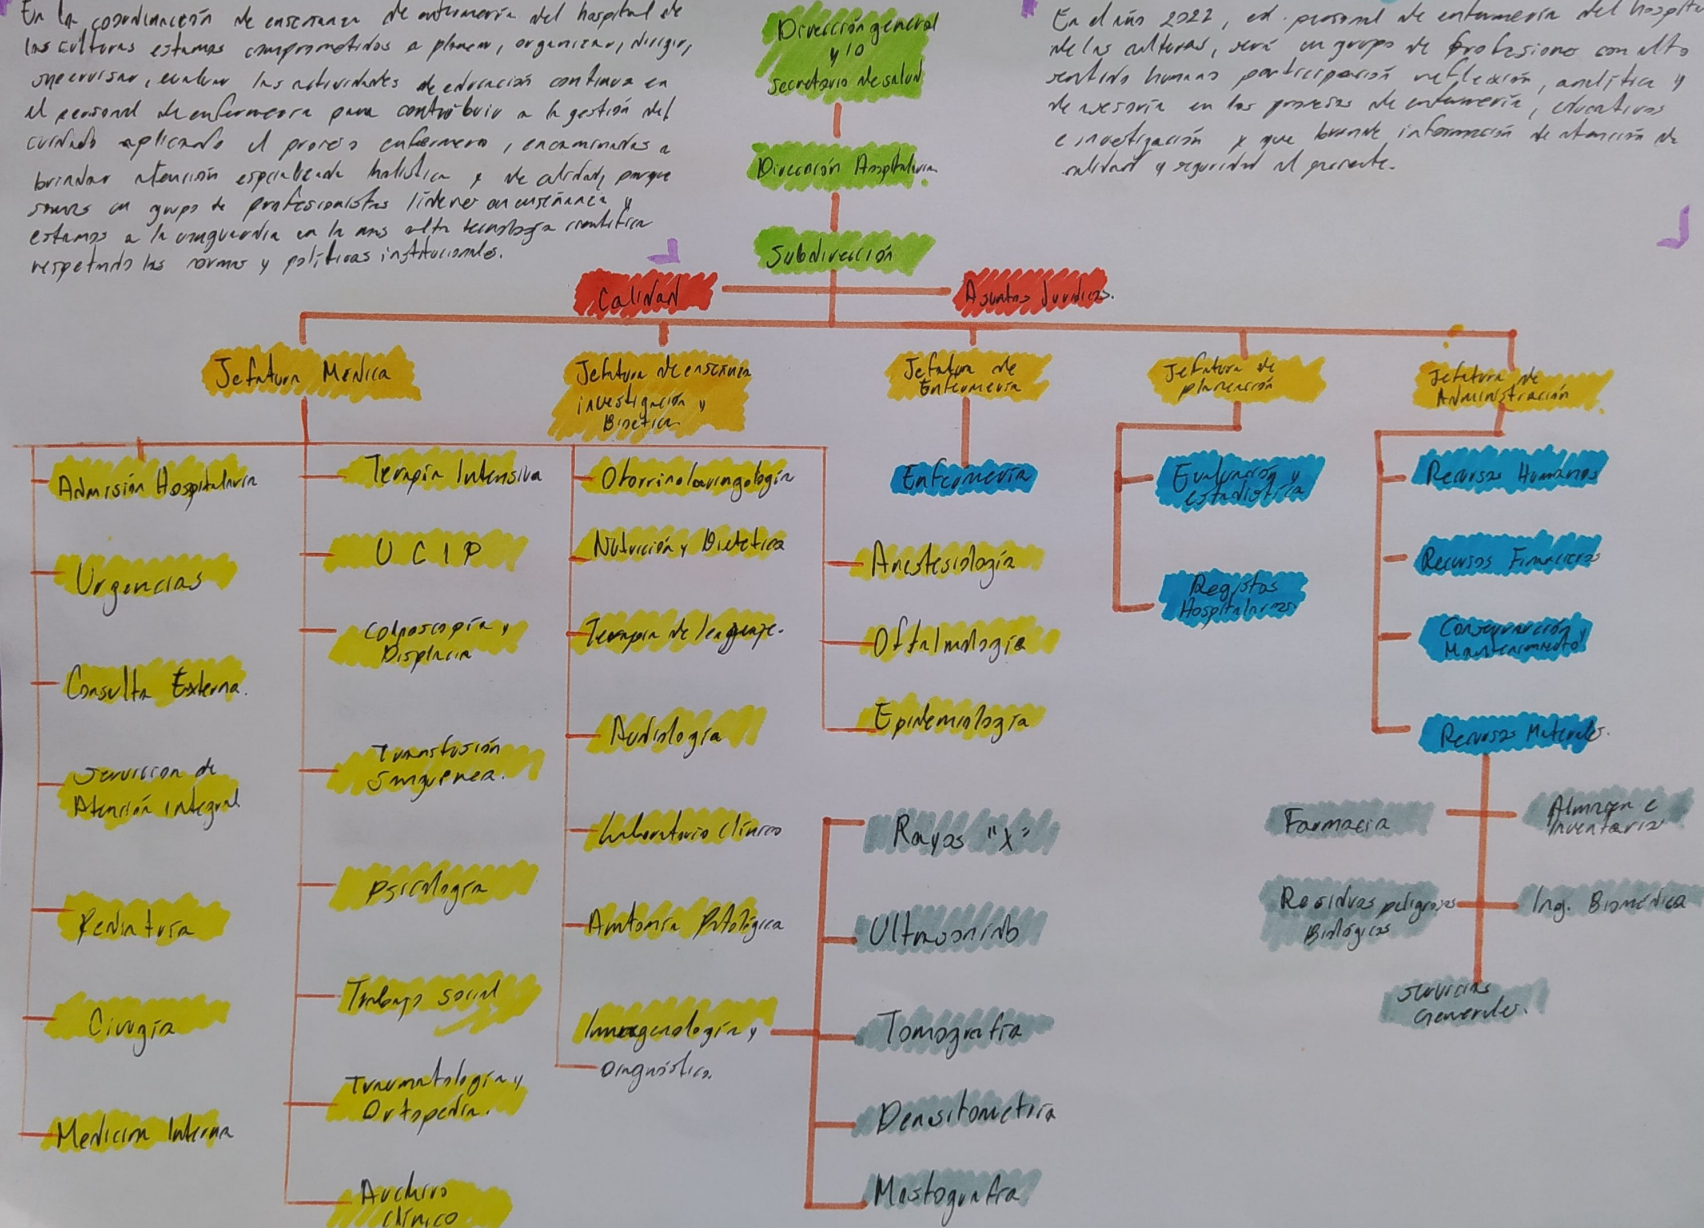 En la coordinación de enseñanza de enfermería del hospital de
las culturas estamos comprometidos a planear, organizar, dirigir,
supervisar, evaluar las actividades de educación continua en
el personal de enfermería para contribuir a la gestión del
cuidado aplicando el proceso enfermero, encaminadas a
brindar atención especializada holística y de calidad, porque
somos un grupo de profesionistas líderes en enseñanza y
estamos a la vanguardia en la mas alta tecnología científica
respetando las normas y políticas institucionales.
En el año 2022, el personal de enfermería del hospital
de las culturas, será un grupo de profesiones con alto
sentido humano participación reflexión, analítica y
de asesoría en los procesos de enfermería, educativos
e investigación y que brinde información de atención de
calidad y seguridad al paciente.
Dirección general
y/o
Secretario de salud
Dirección Hospitalaria
Subdirección
Calidad
Asuntos Jurídicos.
Jefatura Médica
Jefatura de enseñanza
investigación y
Bioética.
Jefatura de
Enfermería
Jefatura de
planeación
Jefatura de
Administración
Admisión Hospitalaria
Urgencias
Consulta Externa.
Servicios de
Atención integral
Pediatría
Cirugía
Medicina Interna
Terapia Intensiva
UCIP
Colposcopía y
Displacia
Transfusión
Sanguínea.
Psicología
Trabajo social
Traumatología y
Ortopedia.
Archivo
Clínico
Otorrinolaringología
Nutrición y Dietética
Terapia de lenguaje.
Audiología
Laboratorio Clínico
Anatomía Patológica
Imagenología y
Diagnóstico.
Anestesiología
Oftalmología
Epidemiología
Rayos "X"
Ultrasonido
Tomografía
Densitometría
Mastografía
Enfermería
Evaluación y
estadística
Registros
Hospitalarios.
Recursos Humanos
Recursos Financieros
Conservación y
Mantenimiento
Recursos Materiales.
Farmacia
Almacen e
inventarios
Residuos peligrosos
Biológicos
Ing. Biomédica
Servicios
Generales.